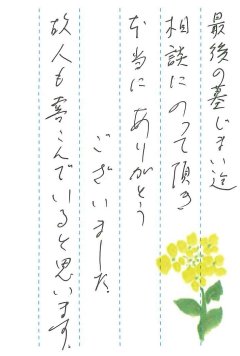 最後の墓じまい迄
相談にのって頂き
本当にありがとう
ございました。
故人も喜こんでいると思います。